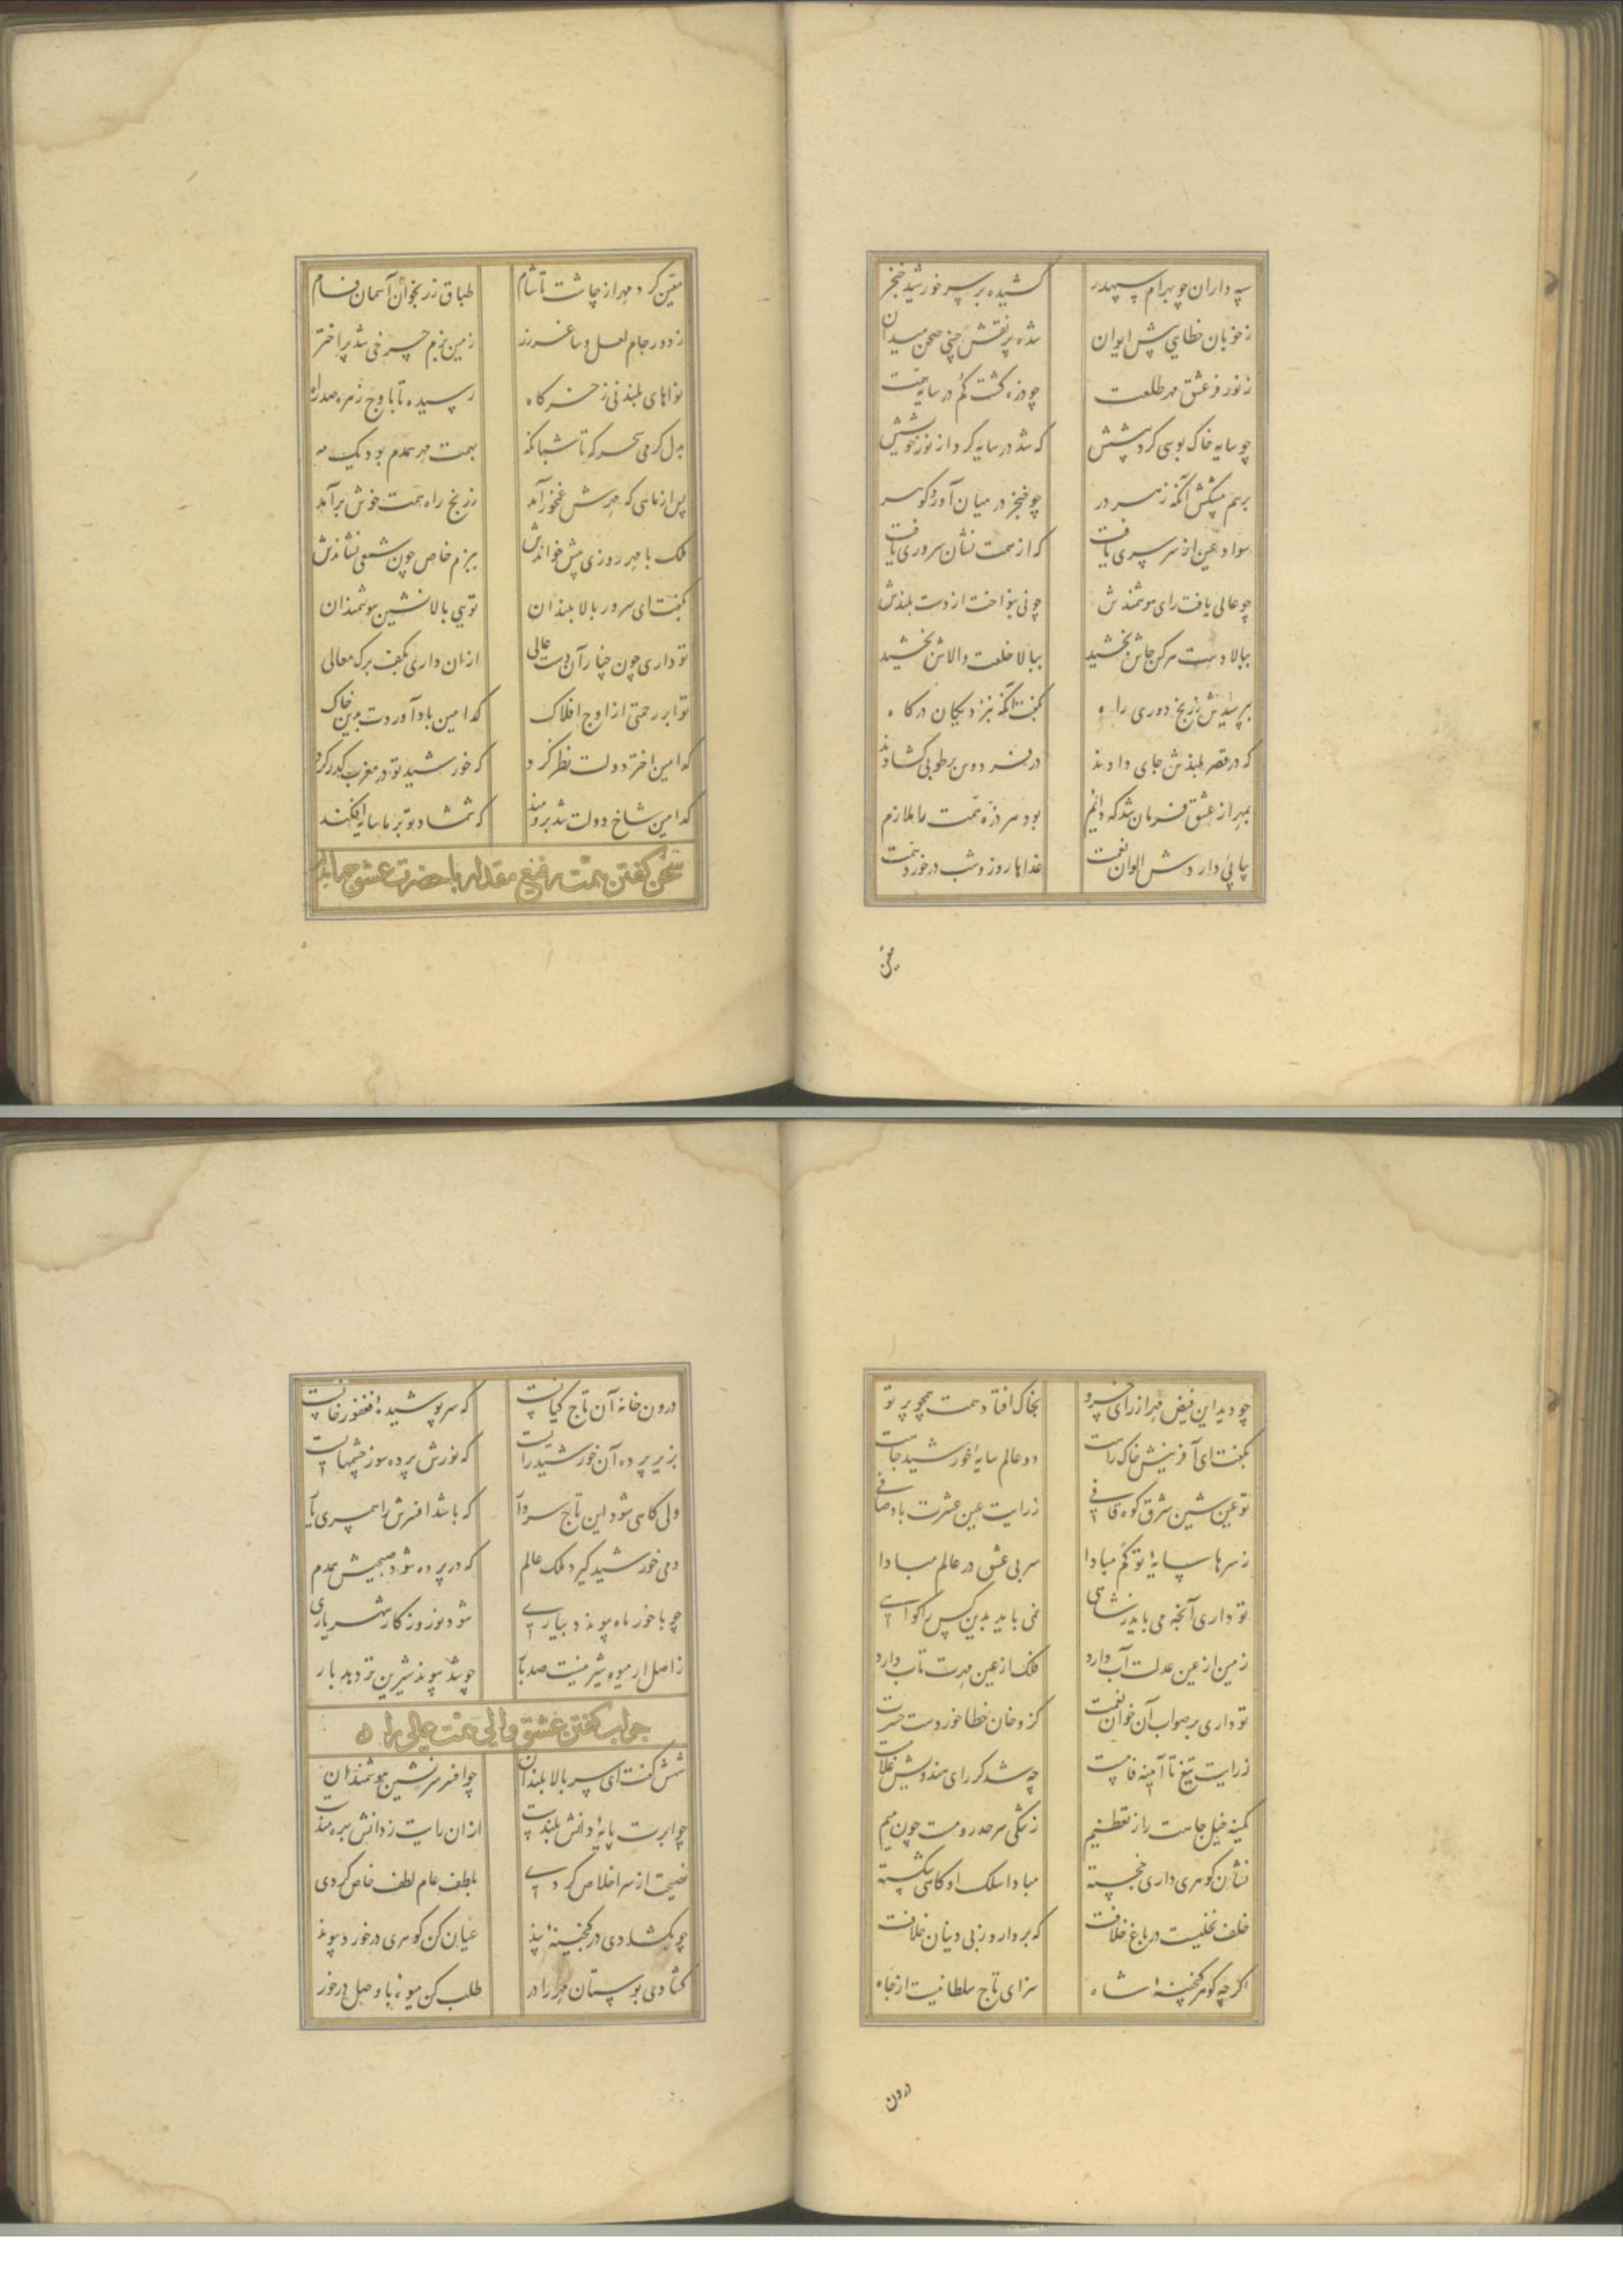 سپه داران چو بهرام سپهدر کشیده بر سپر خورشید خنجر
ز خوبان خطایی پیش ایوان شده پر نقش چینی صحن میدان
ز نور فر عشق مهر طلعت چو ذره گشت گم در سایه همت
چو سایه خاک بوسی کرد پیشش که شد در سایه کرد از نور خویشش
برسم پیشکش آنگه ز هر در چو خنجر در میان آورد گوهر
سواد عین از سر سروری یافت که از همت نشان سروری یافت
چو عالی یافت رای هوشمندش چو نی بنواخت از دست بلندش
ببالا دست هر کس جاش بخشید ببالا خلعت والاش بخشید
بپرسیدش ز رنج دوری راه بگفت آنگه بنزدیکان درگاه
که در قصر بلندش جای دادند در فردوس بر طوبی گشادند
بمهر از عشق فرمان شد که دایم بود هر ذره همت را ملازم
بیابی دار دش الوان نعمت غذاها روز و شب در خورد همت
معین
معین کرد مهر از چاشت تا شام طباق زر بخوان آسمان فام
ز دور جام لعل و ساغر زر زمین بزم چرخی شد پر اختر
نواهای بلند نی ز خرگاه رسیده تا باوج زهره صد راه
بدل گرمی سحرگه تا شبانگه بهمت مهر همدم بود یک مه
پس از ماهی که مهرش غمخور آمد ز رنج راه همت خوش برآمد
ملک با مهر روزی پیش خواندش ببزم خاص چون شمعی نشاندش
بگفت ای سرور بالا بلندان تویی بالانشین هوشمندان
تو داری چون چنار آن دست عالی از ان داری بکف برگ معالی
تو ابر رحمتی از اوج افلاک کدامین باد آوردت بدین خاک
کدامین اختر دولت نظر کرد که خورشید تو در مغرب گذر کرد
کدامین شاخ دولت شد برومند که شمشاد تو بر ما سایه افکند
سخن گفتن همت رفیع مقدار با حضرت عشق جهاندار
چو دید این فیض مهر از رای خسرو بخاک افتاد همت همچو پرتو
بگفت ای آفرینش خاک راهت دو عالم سایه خورشید جاهت
تو عین شین شرق کوه قافی ز رایت عین عشرت باد صافی
ز سرها سایه تو کم مبادا سر بی عشق در عالم مبادا
تو داری آنچه می باید ز شاهی نمی باید بدین کس را گواهی
زمین از عین عدلت آب دارد فلک از عین مهرت تاب دارد
تو داری بر صواب آن خوان نعمت کزو خان خطا خوردست حسرت
ز رایت تیغ تا آیینه فامست چه شد گر رای هندویش غلامست
کمینه خیل جاهت را ز تعظیم ز نگی سر حد رومست چون میم
نشان گوهری داری خجسته مبادا سلک او گاهی شکسته
خلف نخلیست در باغ خلافت که بردارد ز بی دینان خلافت
اگر چه گوهر گنجینه شاه سزای تاج سلطانیست از جاه
درون
درون خانه آن تاج کیانیست که سرپوشیده فغفور خانیست
بزیر پرده آن خورشید رایست که نورش پرده سوز چشمهایست
ولی گاهی شود این تاج سردار که باشد افسرش را همسری یار
دمی خورشید گیرد ملک عالم که در پرده شود صبحیش همدم
چو با خور ماه پیوندد بیاری شود نور روزگار شهریاری
ز اصل ار میوه شیرینست صد بار چو شد پیوند شیرین تر دهد بار
جواب گفتن عشق والی همت عالی را
شهش گفت ای سر بالا بلندان چو افسر سرنشین هوشمندان
چو ابرت پایه دانش بلندست از ان رایت ز دانش بهره مندست
نصیحت از سر اخلاص کردی بلطف عام لطف خاص کردی
چو بگشادی در گنجینه پند عیان کن گوهری در خورد پیوند
گشادی بوستان مهر را در طلب کن میوه با وصل در خور